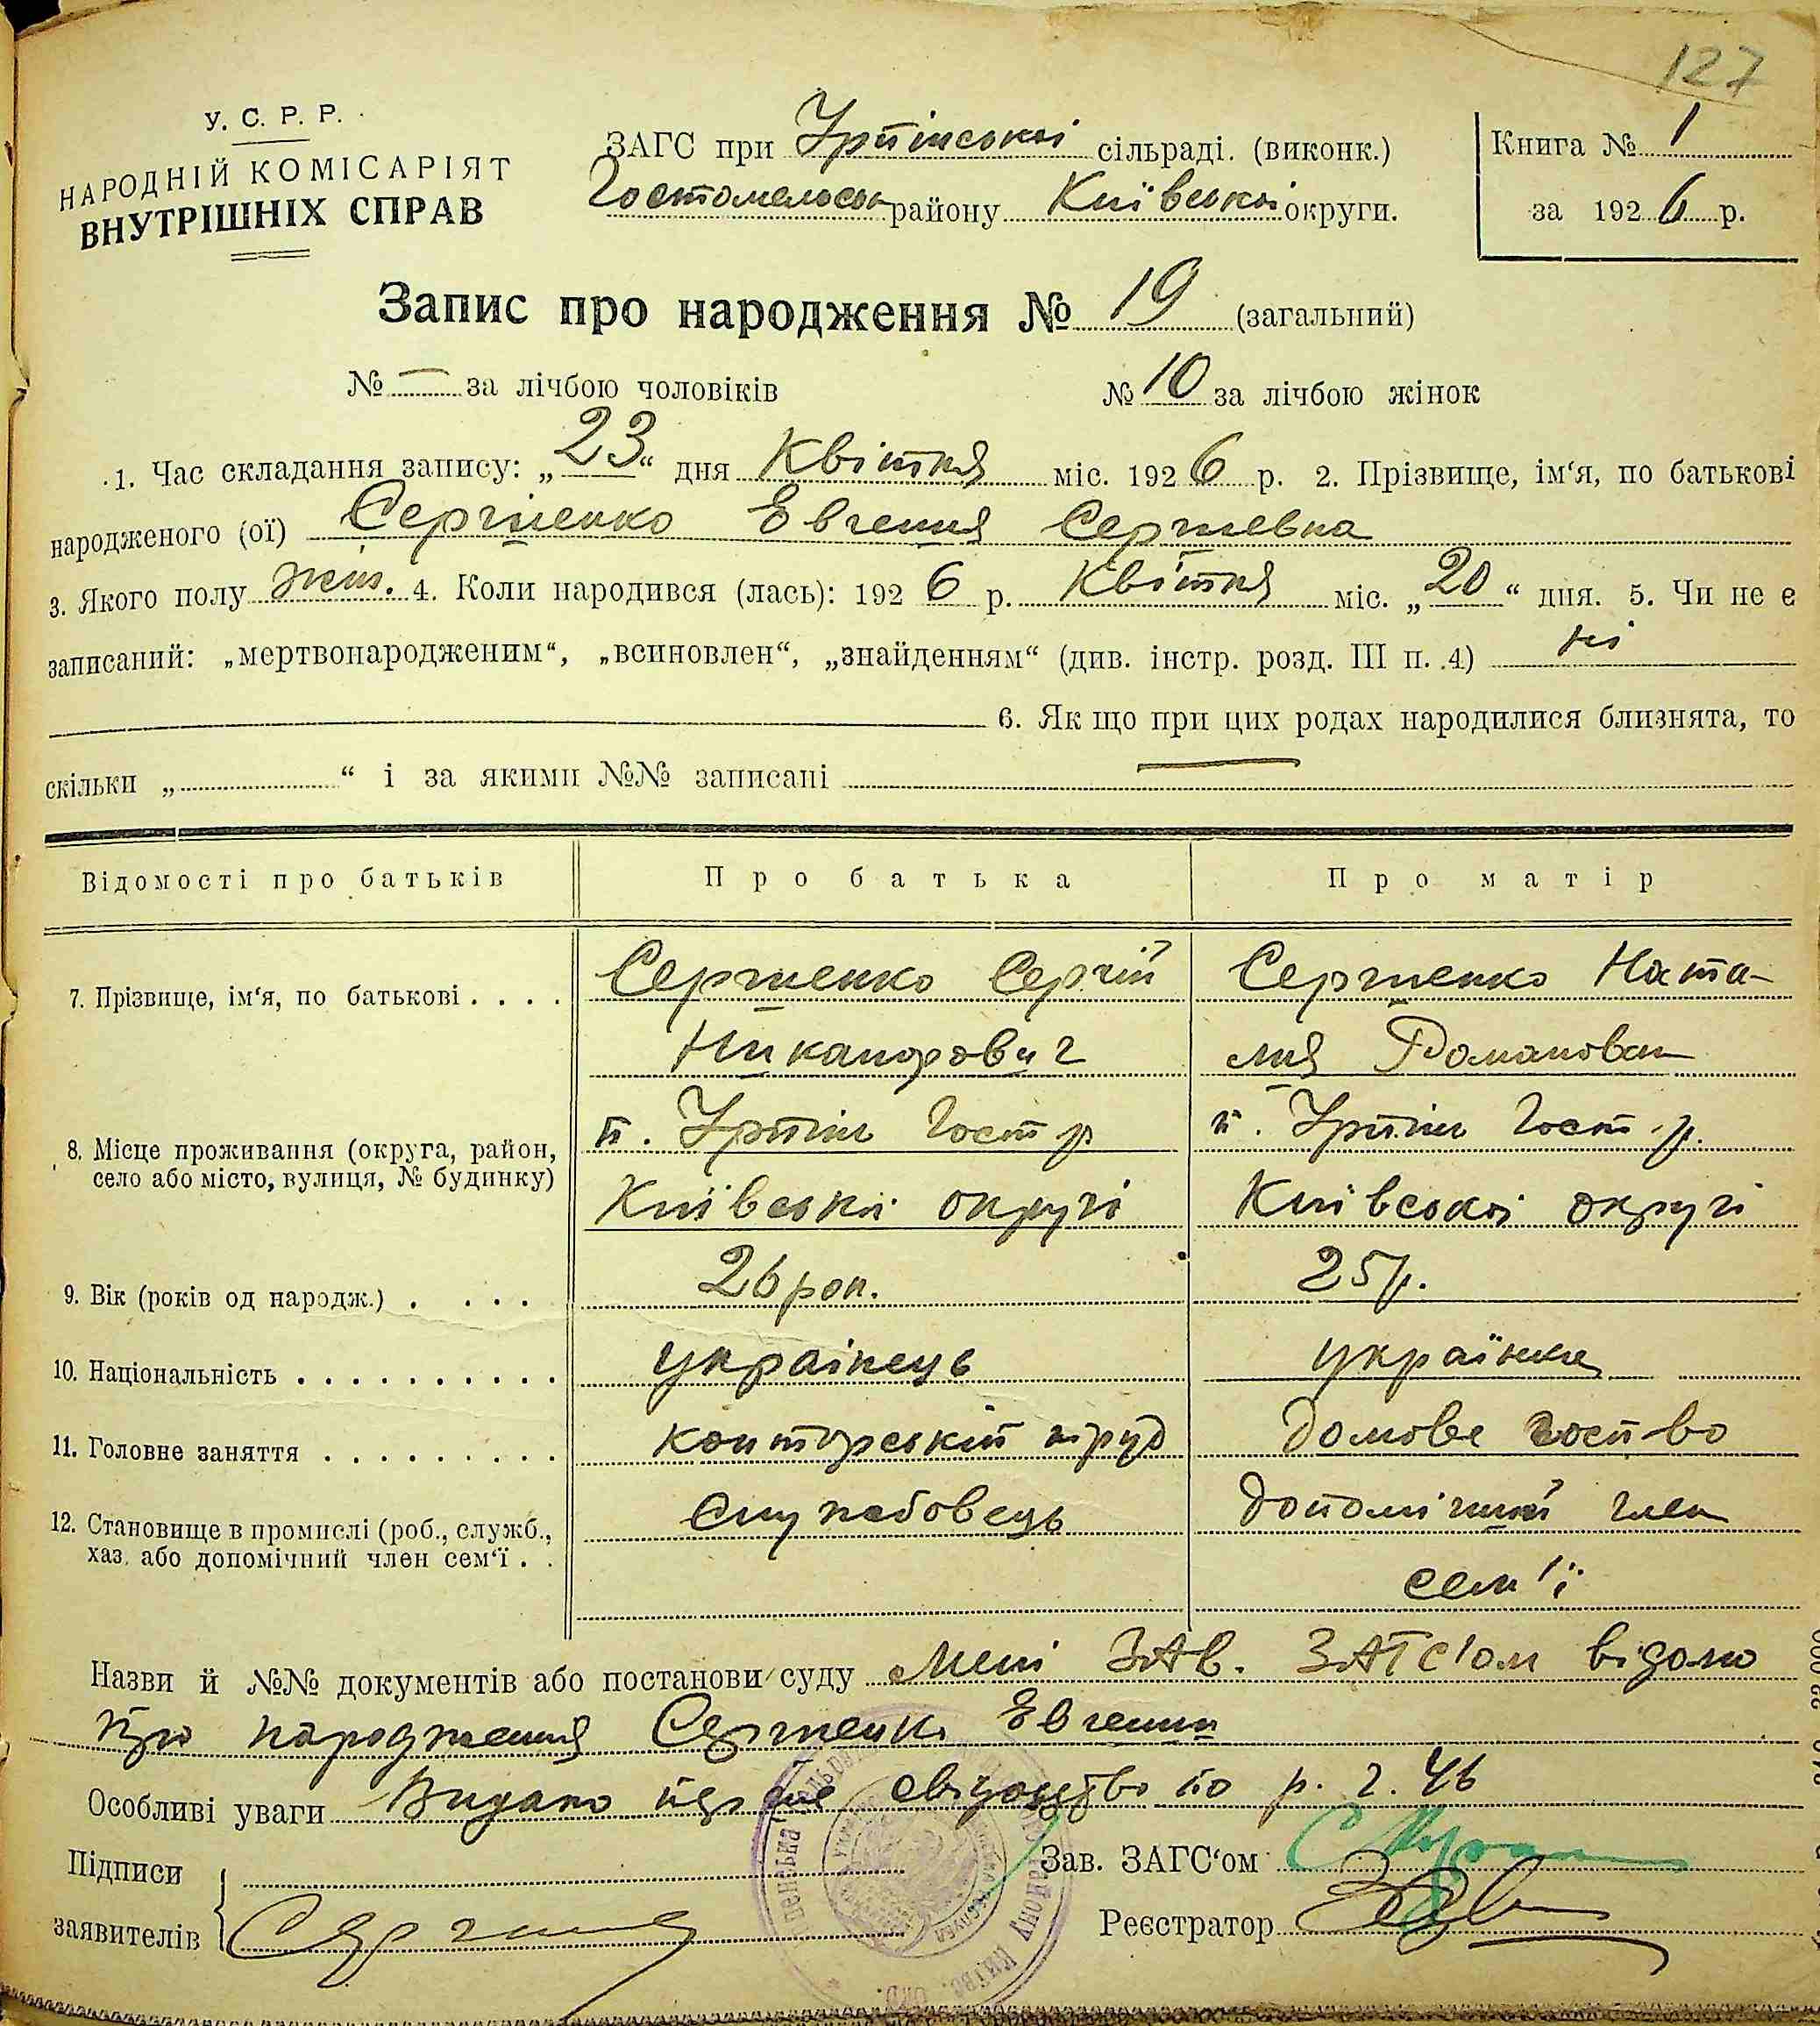 127
У. С. Р. Р.
НАРОДНІЙ КОМІСАРІЯТ
ВНУТРІШНІХ СПРАВ
ЗАГС при Ірпінської сільраді. (виконк.)
Гостомельськ району Київської округи.
Книга № 1
за 1926 р.
Запис про народження № 19 (загальний)
№ — за лічбою чоловіків № 10 за лічбою жінок
1. Час складання запису: „23“ дня Квітня міс. 1926 р. 2. Прізвище, ім‘я, по батькові
народженого (ої) Сергиенко Евгения Сергіевна
3. Якого полу жін. 4. Коли народився (лась): 1926 р. Квітня міс. „20“ дня. 5. Чи не є
записаний: „мертвонародженим“, „всиновлен“, „знайденням“ (див. інстр. розд. III п. 4) ні
6. Як що при цих родах народилися близнята, то
скільки „ “ і за якими №№ записані —
Відомості про батьків Про батька Про матір
7. Прізвище, ім‘я, по батькові . . . . Сергиенко Сергій Сергиенко Ната-
Никанорович лия Романовна
8. Місце проживання (округа, район, п. Ірпінь Гост р п. Ірпінь Гост. р.
село або місто, вулиця, № будинку)
Київської округі Київської округі
9. Вік (років од народж.) . . . . 26 рок. 25 р.
10. Національність . . . . . . . . . . українець українка
11. Головне заняття . . . . . . . . . конторський труд домове госп-во
12. Становище в промислі (роб., служб., служебовець допомічний член
хаз. або допомічний член сем‘ї . .
сем'ї
Назви й №№ документів або постанови суду Мені ЗАВ. ЗАГС'ом відомо
про народження Сергиенко Евгении
Особливі уваги Видано свідоцтво по р. 2. 46
Підписи
заявителів
Зав. ЗАГС‘ом
Реєстратор